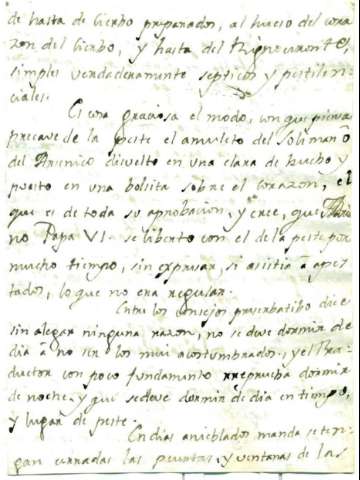 de hasta de Cierbo preparados, al hueso del cora
zon del Cierbo, y hasta del
simples verdaderamente septicos y pestilen
ciales.
Es cosa graciosa el modo, con que piensa
precaver de la peste el amuleto del Soliman ò
del Arsenico disuelto en una clara de huebo y
puesto en una bolsita sobre el corazon, el
que es de toda su aprobacion, y cree, que
no Papa VI. se libertò con el de la peste por
mucho tiempo, sin expresar, si asistia à apes
tados, lo que no era regular.
Entre los consejos preserbatibos dice
sin alegar ninguna razon, no se deve dormir de
dia à no ser los mui acostumbrados, y el Tra
ductor con poco fundamento reprueba dormir
de noche, y que se deve dormir de dia en tiempo,
y lugar de peste.
En dias anieblados manda se ten
gan cerradas las puertas, y ventanas de las